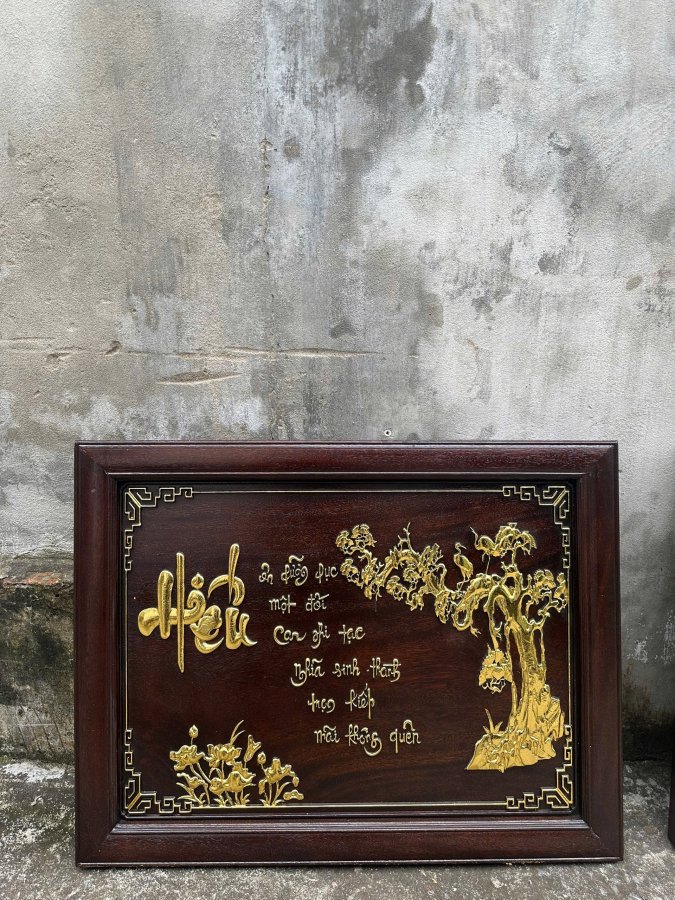 Hiếu
ơn dưỡng dục
một đời
con ghi tạc
nghĩa sinh thành
trọn kiếp
mãi không quên